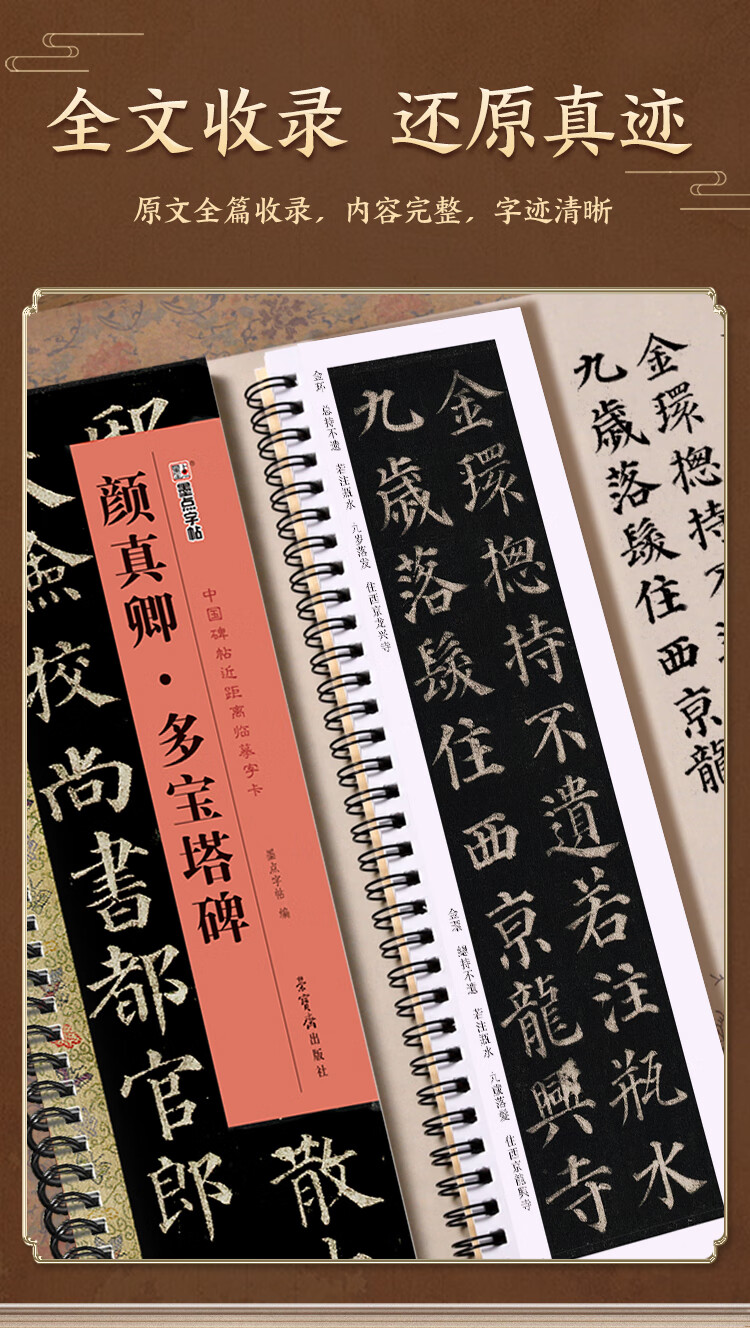 全文收录 还原真迹
原文全篇收录，内容完整，字迹清晰
金環揔持不遺若注瓶水
九歲落髮住西京龍興寺
金环 总持不遗 若注瓶水 九岁落发 住西京龙兴寺
金環 緫持不遺 若注瓶水 九歲落髮 住西京龍興寺
金環揔持不
九歲落髮住西京龍
墨点字帖
颜真卿·多宝塔碑
中国碑帖近距离临摹字卡
墨点字帖 编
荣宝斋出版社
校
尚書都官郎
散